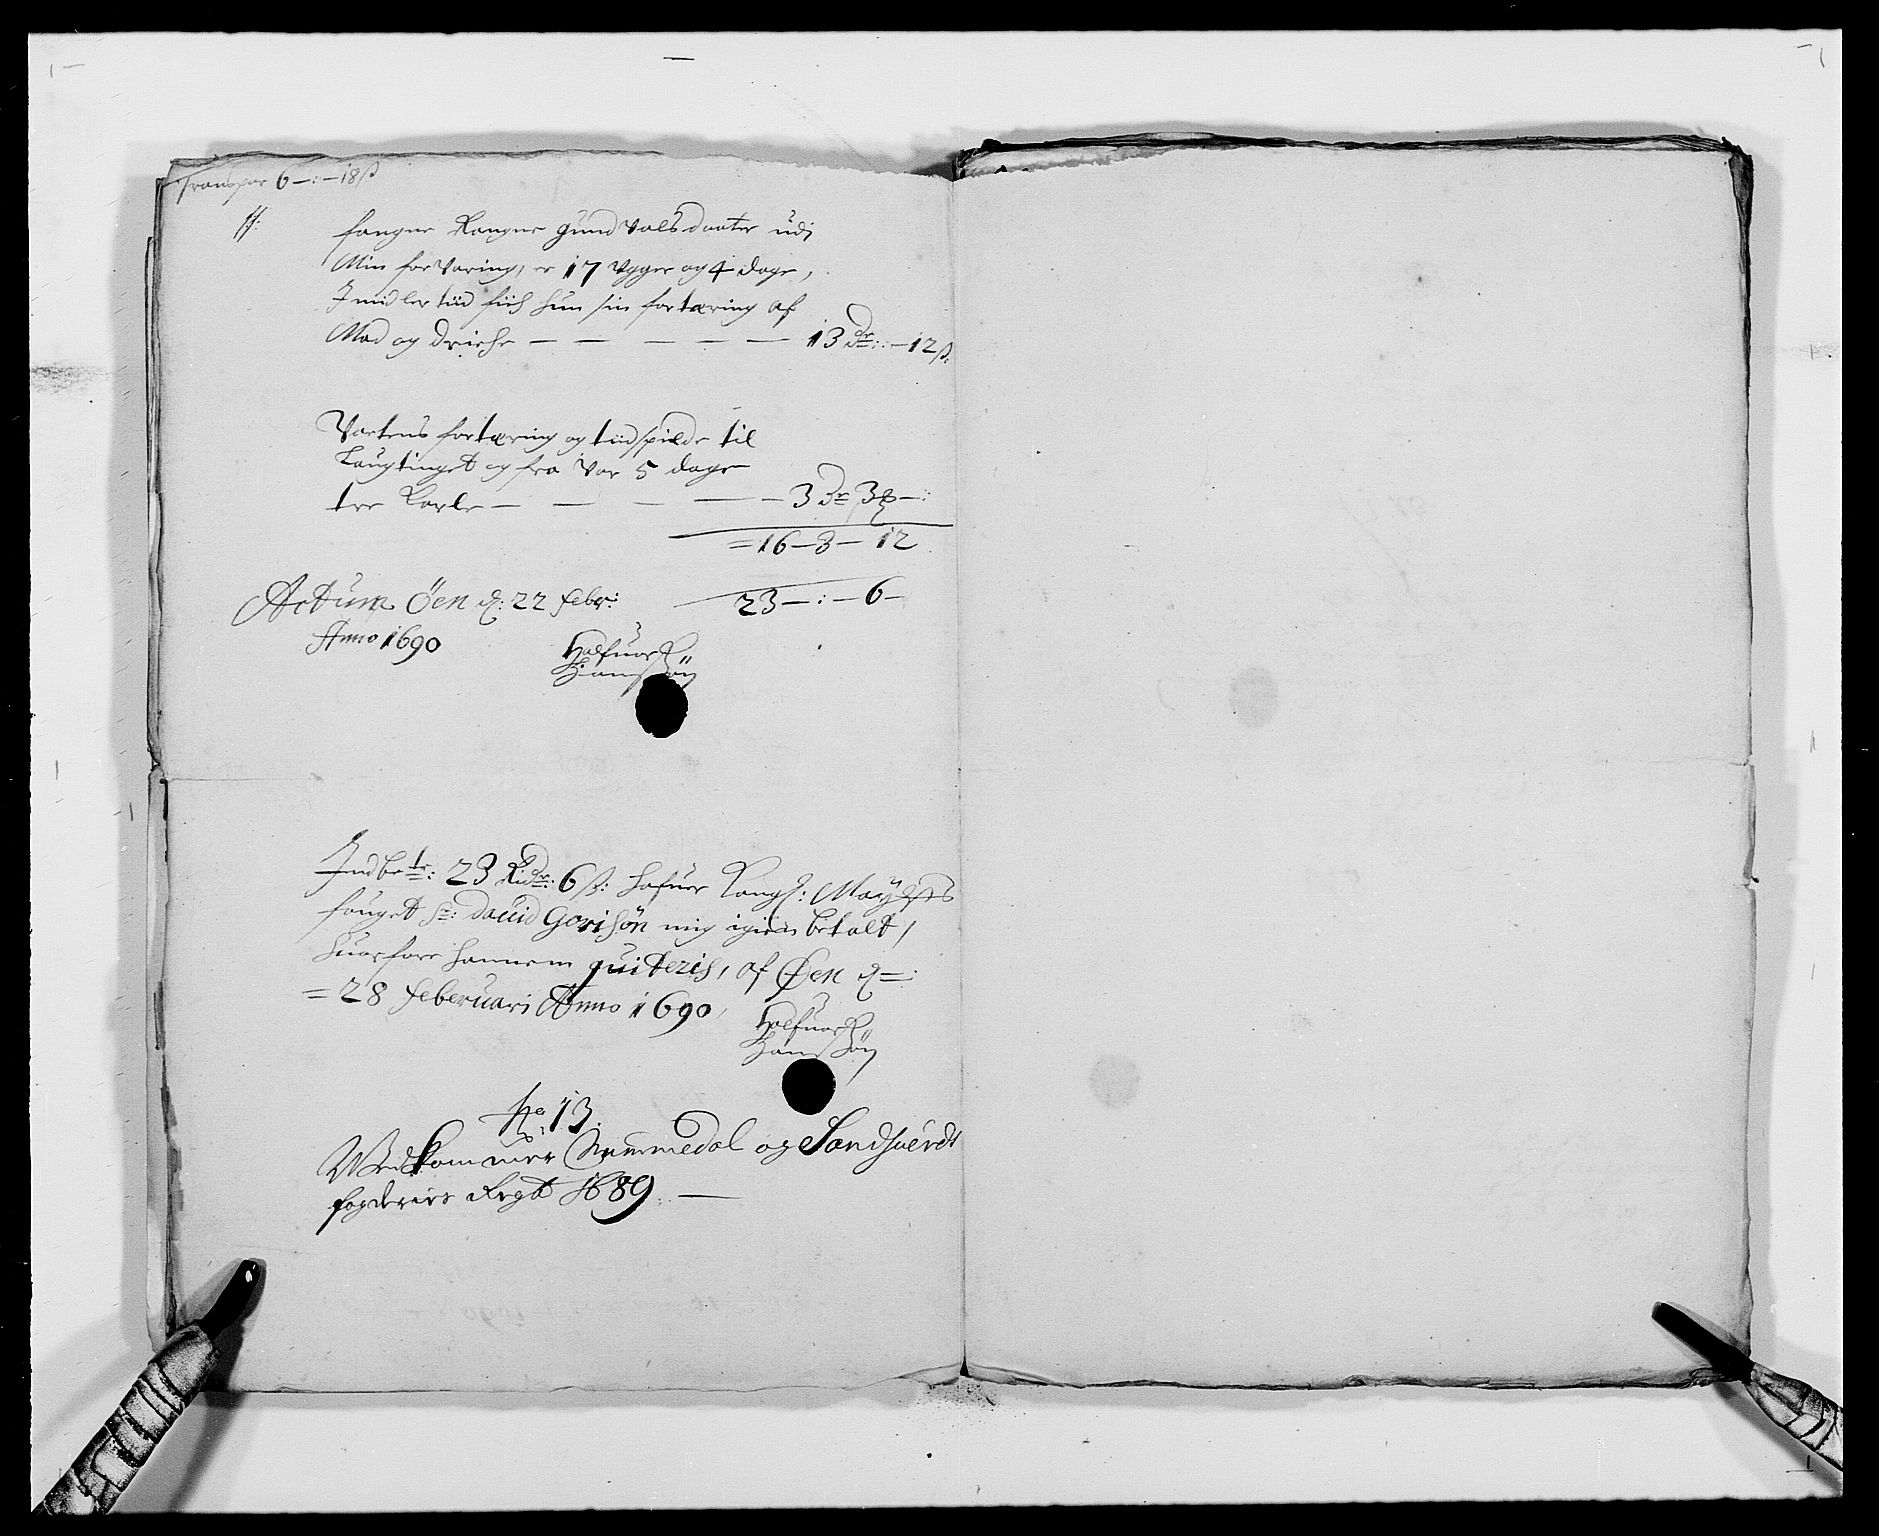 Transpor 6 –:– 18 ß
ff:
fangne Rangne Gundvalsdaater udi
Min forvaring, er 17 Ugger og 4 dage,
Imidlertiid fich hun sin fortæring af
Mad og driche — — — — — 13 Dr: – 12 ß:
Vartens fortæring og tiidspilde til
Laugtinget og fra var 5 dage
tre Karle — — — — 3 Dr 3 –:
= 16 – 3 – 12
Actum Öen d: 22 febr:
23 –:– 6 –
Anno 1690
Halfuor
Hansøn
Indbete: 23 Rdr: 6 ß: hafuer Kongl: Mayts
fouget Sr: Dauid Gorisøn mig igien betalt,
huorfore hannem quiteris, af Øen d =:
= 28 Feberuari Anno 1690,
Halfuor
Hansøn
No 13:
Wedkommer Nummedal og Sandsuerdt
fogderies Regt 1689: —